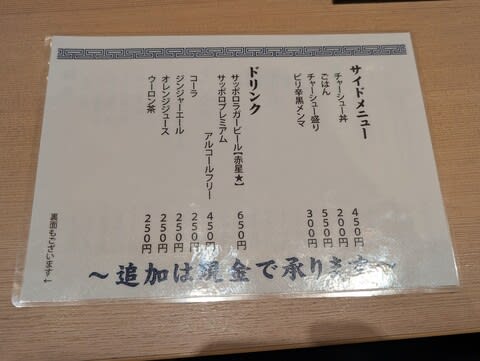 サイドメニュー
チャーシュー丼 450円
ごはん 200円
チャーシュー盛り 550円
ピリ辛黒メンマ 300円
ドリンク
サッポロラガービール【赤星★】 650円
サッポロプレミアム
アルコールフリー 450円
コーラ 250円
ジンジャーエール 250円
オレンジジュース 250円
ウーロン茶 250円
裏面もございます↓
～追加は現金で承ります～